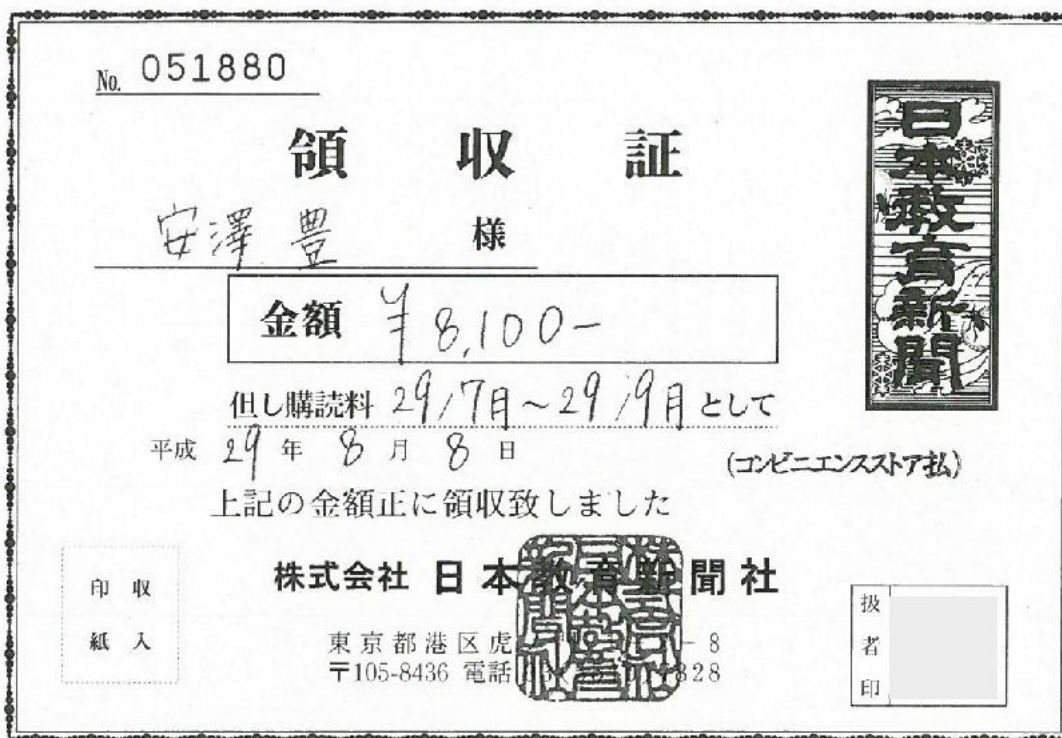 No. 051880
領収証
安澤 豊 様
金額 ¥8,100-
但し購読料 29/7月~29/9月 として
平成 29 年 8 月 8 日
(コンビニエンスストア払)
上記の金額正に領収致しました
株式会社 日本教育新聞社
東京都港区虎 - 8
〒105-8436 電話 828
日本教育新聞
収入
印紙
扱者印